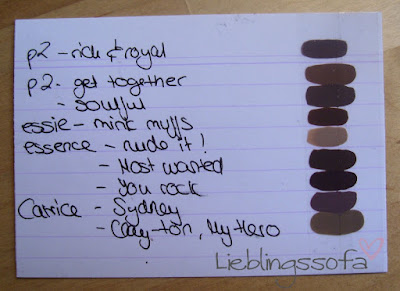 p2 - rich & royal
p2 - get together
- soulful
essie - mink muffs
essence - nude it!
- Most wanted
- You rock
Catrice - Sydney
- Clay-ton, My Hero
Lieblingssofa